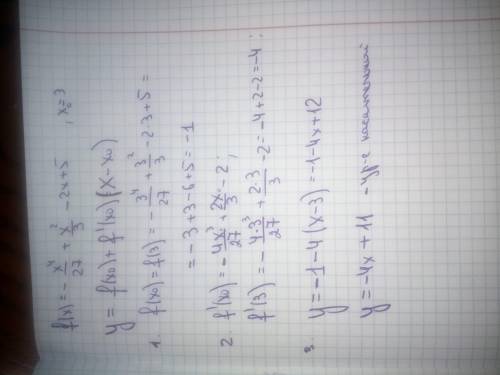 f(x) = -x⁴/27 + x²/3 - 2x + 5 , x₀=3
y = f(x₀) + f'(x₀)(x - x₀)
1. f(x₀) = f(3) = -3⁴/27 + 3²/3 - 2·3 + 5 =
= -3 + 3 - 6 + 5 = -1
2 f'(x₀) = -4x³/27 + 2x/3 - 2 ;
f'(3) = -4·3³/27 + 2·3/3 - 2 = -4 + 2 - 2 = -4 ;
3. y = -1 - 4(x - 3) = -1 - 4x + 12
y = -4x + 11 - ур-е касательной